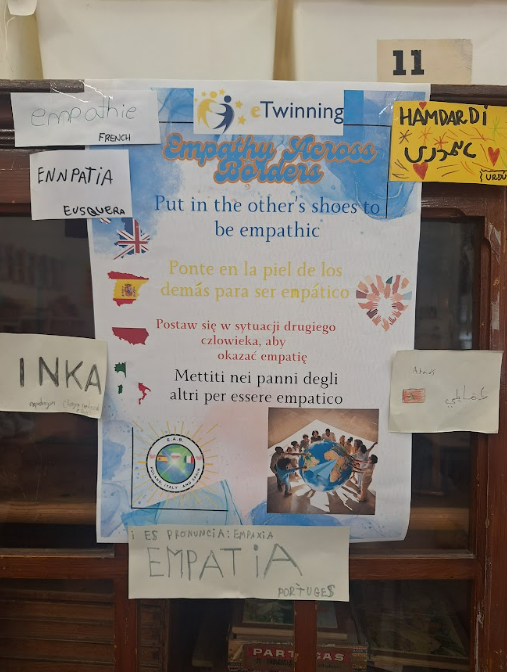 11
empathie
FRENCH
eTwinning
HAMDARDI
ہمدردی
URDU
ENNPATIA
EUSQUERA
Empathy Across
Borders
Put in the other's shoes to
be empathic
Ponte en la piel de los
demás para ser empático
Postaw się w sytuacji drugiego
człowieka, aby
okazać empatię
Mettiti nei panni degli
altri per essere empatico
INKA
E.A.B
i ES PRONUNCIA: EMPAXIA
EMPATiA
PORTUGES